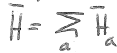 H̄ = Σ_a H̄_a